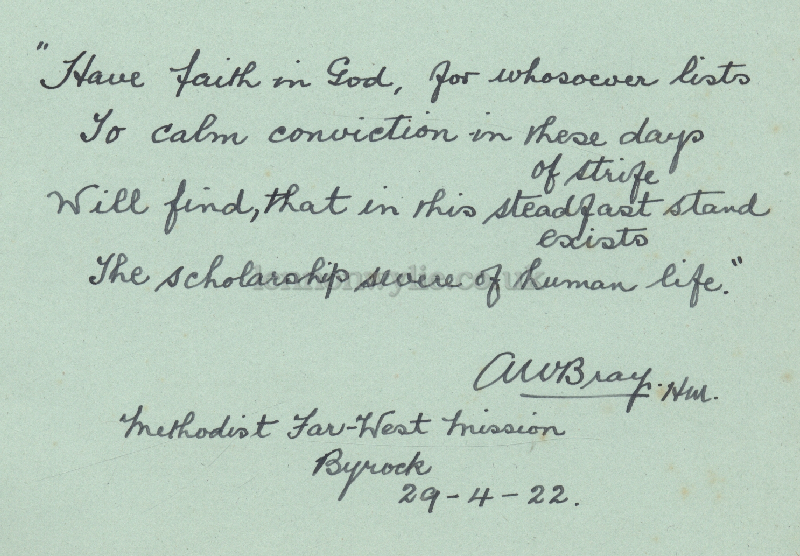 "Have faith in God, for whosoever lists
To calm conviction in these days
of strife
Will find, that in this steadfast stand
exists
The scholarship severe of human life."
lennonwylie.co.uk
AWBray. HM.
Methodist Far-West Mission
Byrock
29-4-22.